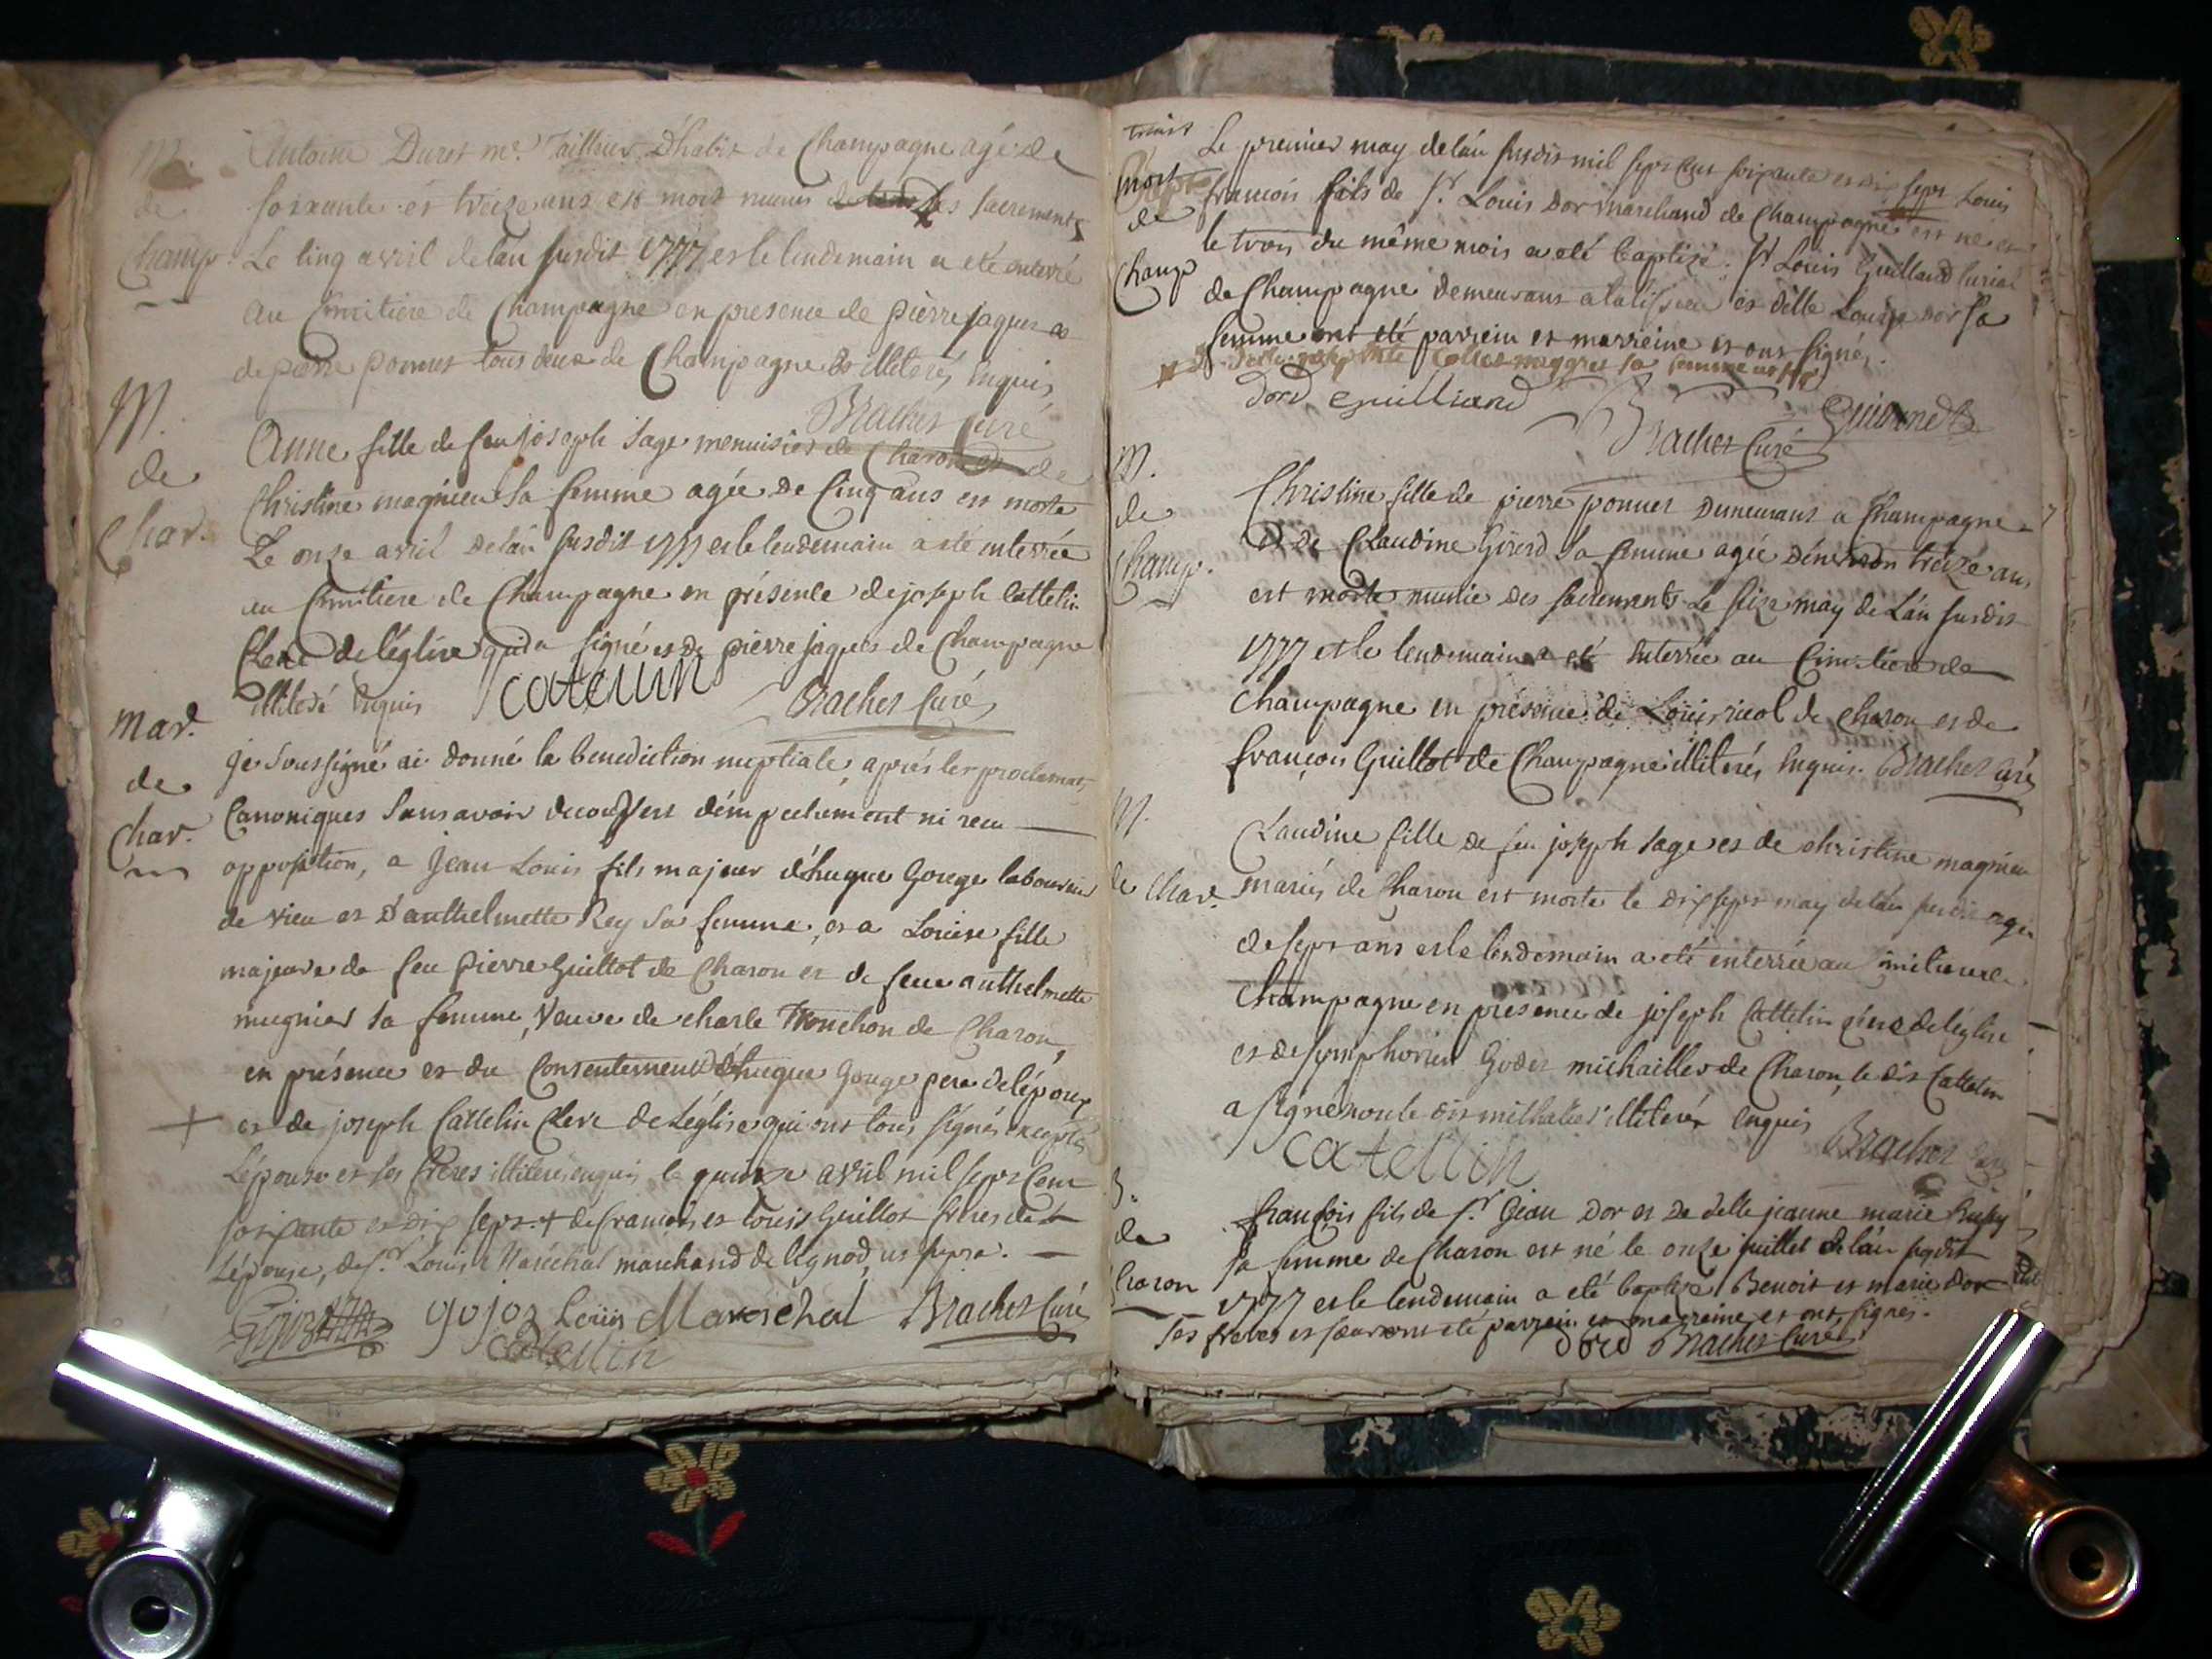 M.
de
Champ.
Antoine Duret me. Tailleur D'habit de Champagne agé de
soixante et treize ans est mort munis des sacrements
Le cinq avril de l'an susdit 1777 et le lendemain a eté enterré
au Cimitiere de Champagne en presence de pierre jaques et
de pierre ponnet tous deux de Champagne illiterés enquis,
Brachet Curé
M.
de
Char.
Anne fille de feu joseph sage menuisier de Charon et de
Christine magnieu sa femme agée de Cinq ans est morte
Le onze avril de l'an susdit 1777 et le lendemain a eté enterrée
au Cimitiere de Champagne en présence de joseph Cattelin
Clerc de l'église qui a signé et de pierre jaques de Champagne
illiteré enquis
catellin
Brachet Curé
Mar.
de
Char.
je soussigné ai donné la benediction nuptiale, aprés les proclamat.
Canoniques sans avoir decouvert d'empechement ni recu
opposition, a Jean Louis fils majeur d'hugue Gouge laboureur
de vieu et D'anthelmette Rey sa femme, et a Louise fille
majeure de feu Pierre Guillot de Charon et de feue anthelmette
mugnier sa femme, veuve de charle de Charon,
en présence et du Consentement d'hugue Gouge pere de l'époux
+ et de joseph Cattelin Clerc de L'église qui ont tous signés excepté
L'épouse et ses freres illiterés enquis le quinze avril mil sept Cent
soixante et dix sept. + de francois et Louis Guillot freres de
L'épouse, de sr. Louis Maréchal marchand de lignod, ut supra.
gojoz Louis Marechal Brachet Curé
catellin
de
Champ
Le premier may de l'an susdit mil sept cent soixante et dix sept Louis
francois fils de sr. Louis Dor marchand de Champagne est né et
le trois du même mois a eté baptisé. sr Louis Guilland
de Champagne demeurant a et delle Louise Dor sa
femme ont eté parrein et marreine et ont signés.
dord guilliand
Brachet Curé
M.
de
Champ.
Christine fille de pierre ponnet Demeurant a Champagne
et de Claudine Girerd sa femme agée d'environ treize ans
est morte munie des sacrements Le seize may de L'an susdit
1777 et le lendemain a eté enterrée au Cimitiere de
Champagne en présence de Louis de Charon et de
françois Guillot de Champagne illiterés enquis. Brachet Curé
M.
de Char.
Claudine fille de feu joseph sage et de christine magnieu
mariés de Charon est morte le dix sept may de l'an susdit agée
de sept ans et le lendemain a eté enterrée au Cimitiere de
Champagne en présence de joseph Cattelin clerc de l'église
et de symphorien Godet michaillet de Charon, le dit Cattelin
a signé non le dit michallet illiteré enquis
catellin
Brachet Curé
B.
de
Charon
françois fils de sr. Jean Dor et de delle jeanne marie
sa femme de Charon est né le onze juillet de l'an susdit
1777 et le lendemain a eté baptisé Benoit et marie Dor
ses freres et soeur ont eté parrein et marreine et ont signés.
dord Brachet Curé